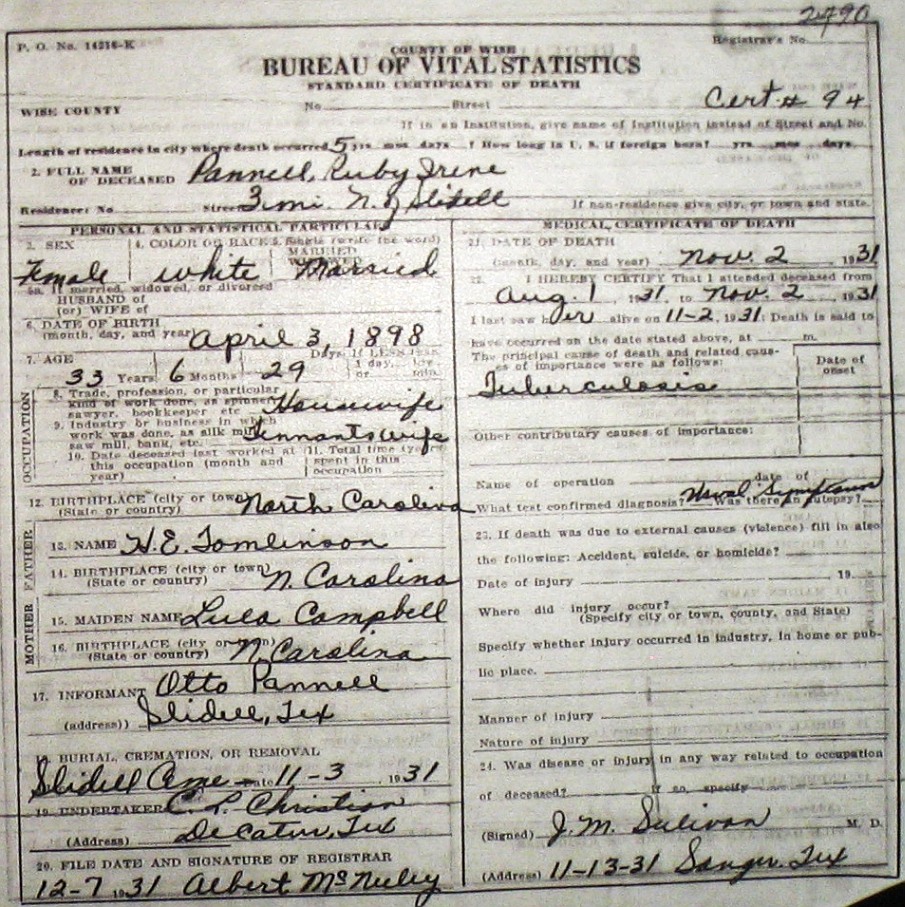 2490
P. O. No. 14216-K
Registrar's No.
COUNTY OF WISE
BUREAU OF VITAL STATISTICS
STANDARD CERTIFICATE OF DEATH
WISE COUNTY
No. Street
Cert # 94
If in an Institution, give name of Institution instead of Street and No.
Length of residence in city where death occurred 5 yrs mos days ? How long in U. S. if foreign born? yrs. mos days.
2. FULL NAME OF DECEASED Pannell, Ruby Irene
Residence: No Street 3 mi. N. of Slidell If non-residence give city, or town and state.
PERSONAL AND STATISTICAL PARTICULARS
3. SEX 4. COLOR OR RACE 5. Single (write the word)
MARRIED
WIDOWED
Female white Married
5a. If married, widowed, or divorced
HUSBAND of
(or) WIFE of
6. DATE OF BIRTH
(month, day, and year) April 3, 1898
7. AGE Days If LESS than
1 day, hrs.
or min.
33 Years 6 Months 29
OCCUPATION
8. Trade, profession, or particular
kind of work done, as spinner
sawyer, bookkeeper etc Housewife
9. Industry or business in which
work was done, as silk mill
saw mill, bank, etc. Tennants wife
10. Date deceased last worked at
this occupation (month and
year)
11. Total time (years)
spent in this
occupation
12. BIRTHPLACE (city or town)
(State or country) North Carolina
FATHER
13. NAME H. E. Tomlinson
14. BIRTHPLACE (city or town)
(State or country) N. Carolina
MOTHER
15. MAIDEN NAME Lula Campbell
16. BIRTHPLACE (city or town)
(State or country) N. Carolina
17. INFORMANT Otto Pannell
(address)) Slidell, Tex
BURIAL, CREMATION, OR REMOVAL
Slidell Ceme Date 11-3 1931
19. UNDERTAKER C. L. Christian
(Address) Decatur, Tex
20. FILE DATE AND SIGNATURE OF REGISTRAR
12-7 1931 Albert McNeely
MEDICAL CERTIFICATE OF DEATH
21. DATE OF DEATH
(month, day, and year) Nov. 2 1931
22. I HEREBY CERTIFY That I attended deceased from
Aug. 1 1931. to Nov. 2 1931
I last saw her alive on 11-2, 1931. Death is said to
have occurred on the date stated above, at m.
The principal cause of death and related causes
of importance were as follows:
Date of onset
Tuberculosis
Other contributory causes of importance:
Name of operation date of
What test confirmed diagnosis? Usual Symptoms Was there an autopsy?
23. If death was due to external causes (violence) fill in also
the following: Accident, suicide, or homicide?
Date of injury 19
Where did injury occur?
(Specify city or town, county, and State)
Specify whether injury occurred in industry, in home or pub-
lic place.
Manner of injury
Nature of injury
24. Was disease or injury in any way related to occupation
of deceased? If so, specify
(Signed) J. M. Sulivan M. D.
(Address) 11-13-31 Sanger, Tex